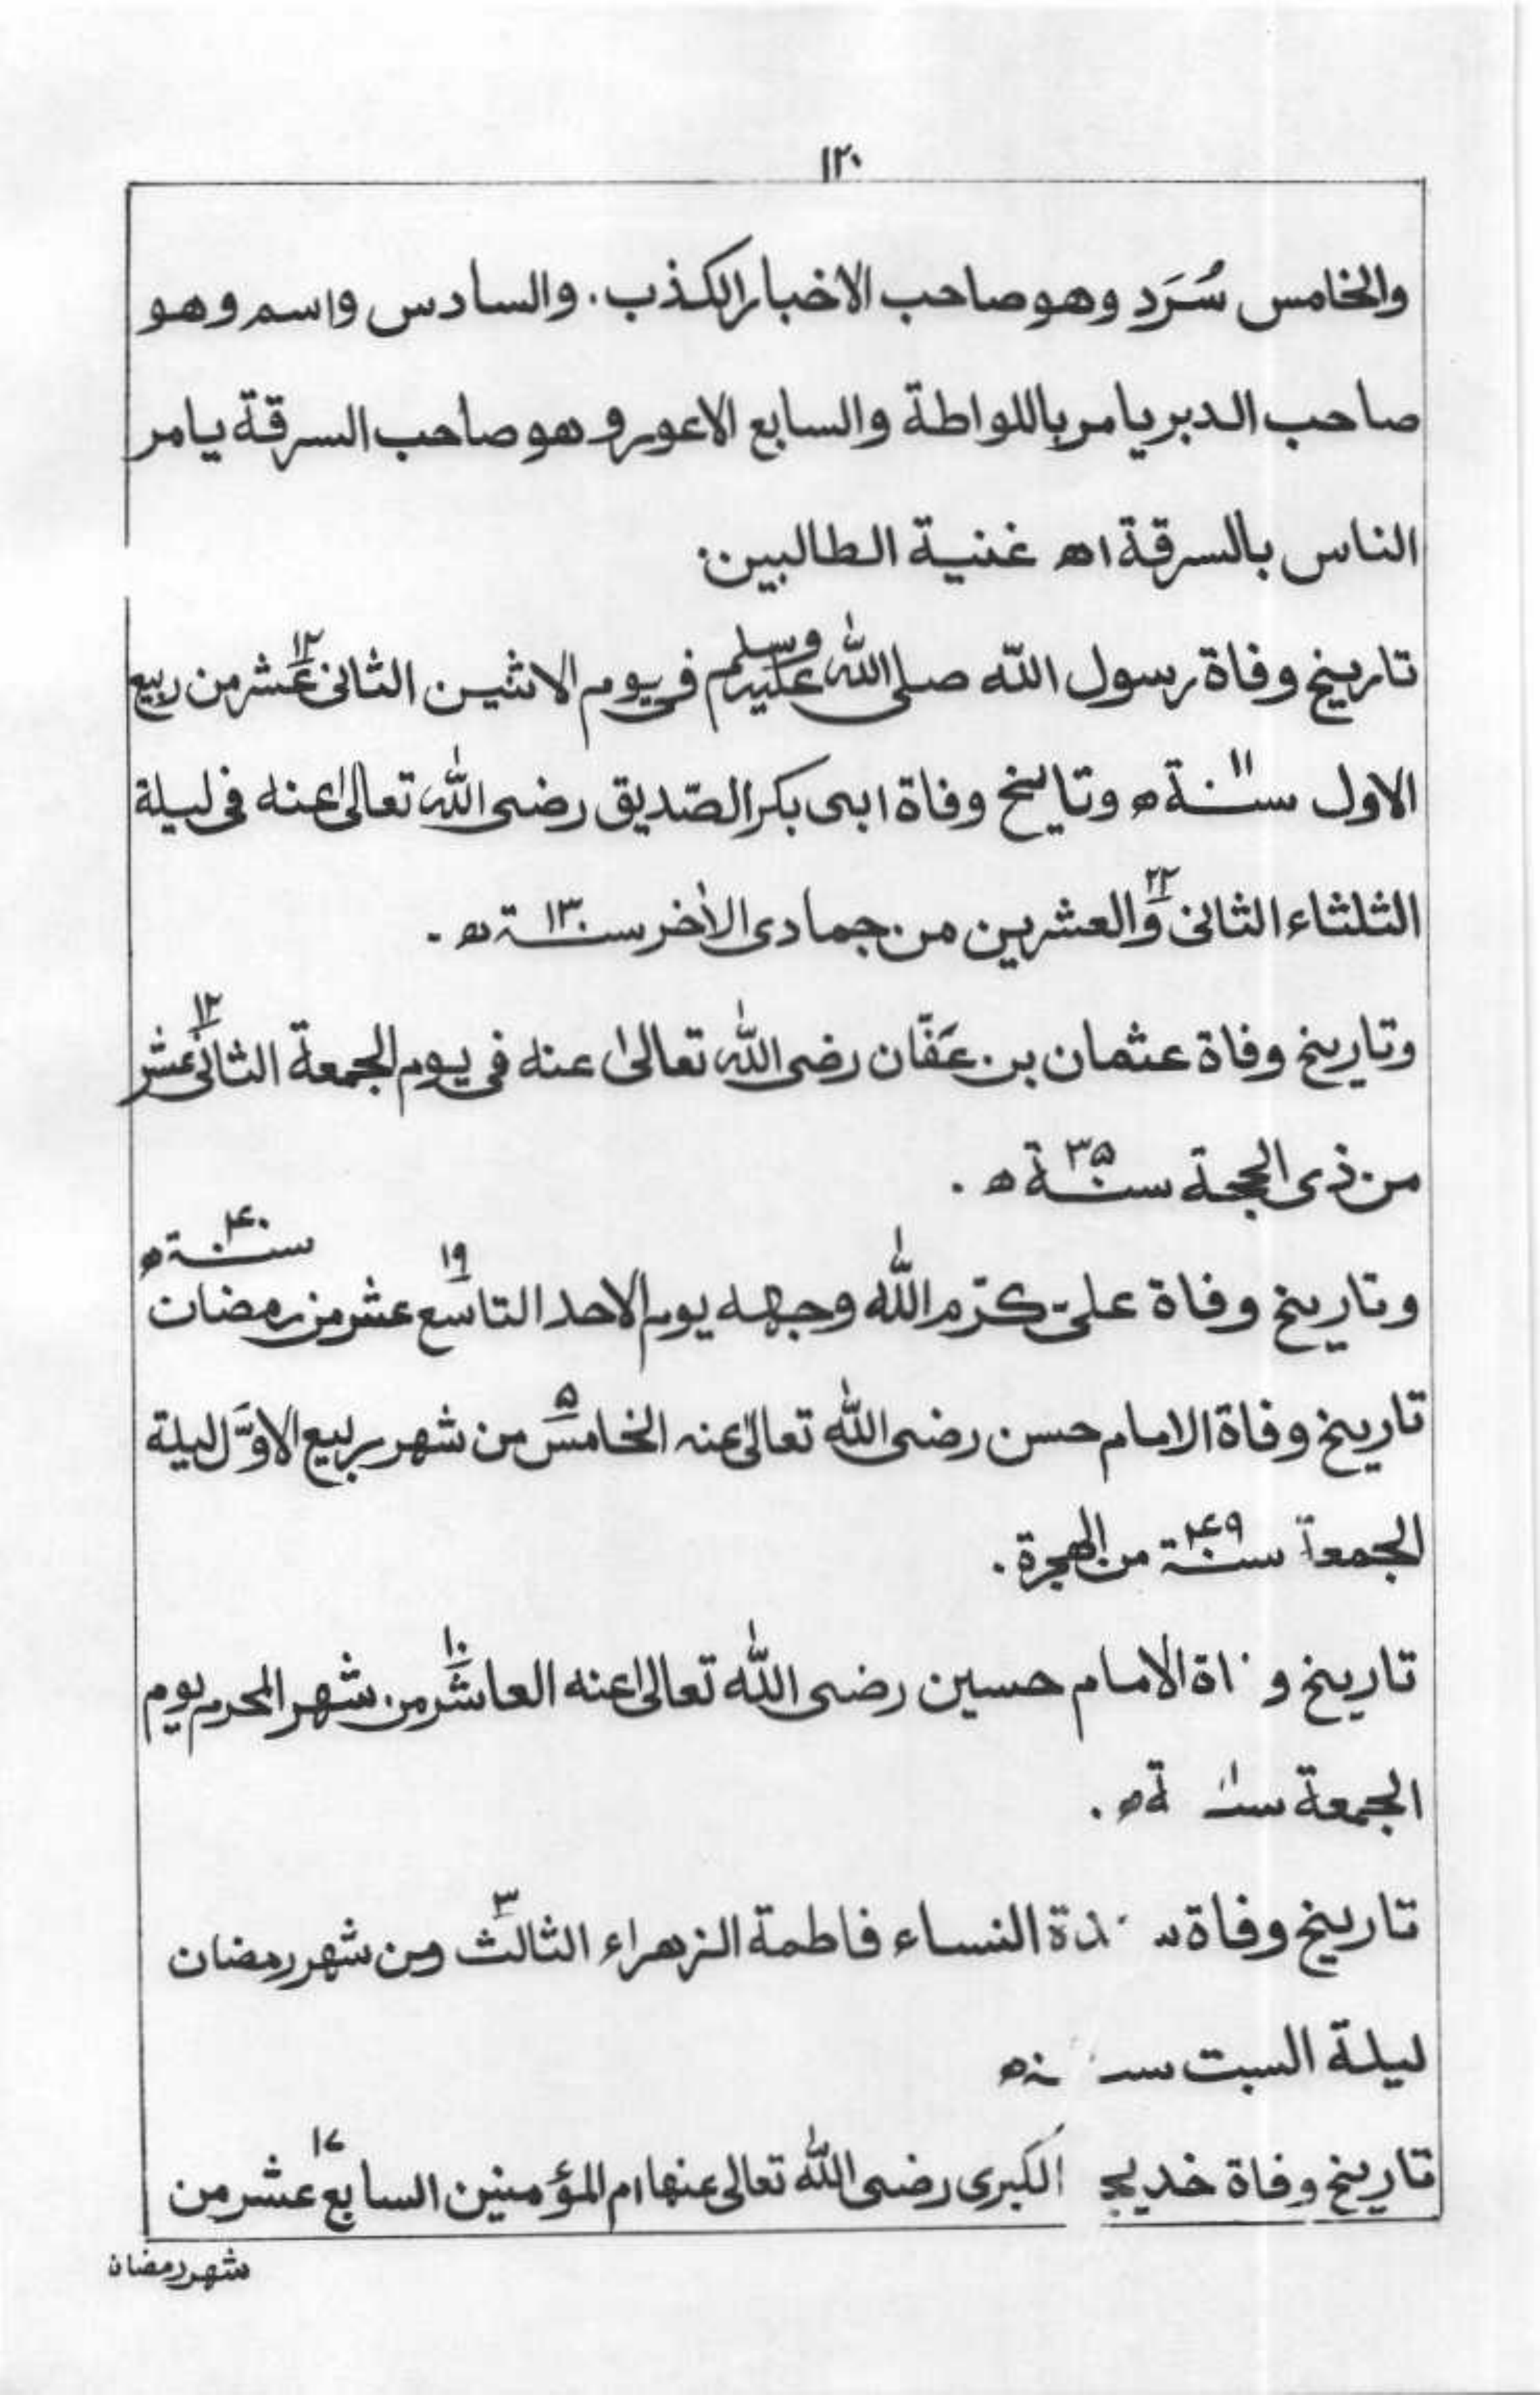 ١٢٠
والخامس سُرَد وهو صاحب الاخبار الكذب. والسادس واسم وهو
صاحب الدبر يامر باللواطة والسابع الاعور وهو صاحب السرقة يامر
الناس بالسرقة اھ غنية الطالبين.
تاريخ وفاة رسول اللّٰه صلى اللّٰه عليه وسلم فى يوم الاثنين الثانى عشر ١٢ من ربيع
الاول سنة ١١ ھ وتاريخ وفاة ابى بكر الصّديق رضى اللّٰه تعالىٰ عنه فى ليلة
الثلثاء الثانى والعشرين ٢٢ من جمادى الاٰخر سنة ١٣ ھ -
وتاريخ وفاة عثمان بن عَفّان رضى اللّٰه تعالىٰ عنه فى يوم الجمعة الثانى عشر ١٢
من ذى الحجة سنة ٣٥ ھ .
وتاريخ وفاة علىّ كرّم اللّٰه وجهه يوم الاحد التاسع عشر ١٩ من رمضان سنة ۴٠ ھ
تاريخ وفاة الامام حسن رضى اللّٰه تعالىٰ عنه الخامس ۵ من شهر ربيع الاوّل ليلة
الجمعة سنة ۴٩ من الهجرة .
تاريخ و اة الامام حسين رضى اللّٰه تعالىٰ عنه العاشر ١٠ من شهر المحرم يوم
الجمعة ھ .
تاريخ وفاة النساء فاطمة الزهراء الثالث ٣ من شهر رمضان
ليلة السبت ھ
تاريخ وفاة خديج الكبرى رضى اللّٰه تعالى عنها ام المؤمنين السابع عشر ١٧ من
شهر رمضان